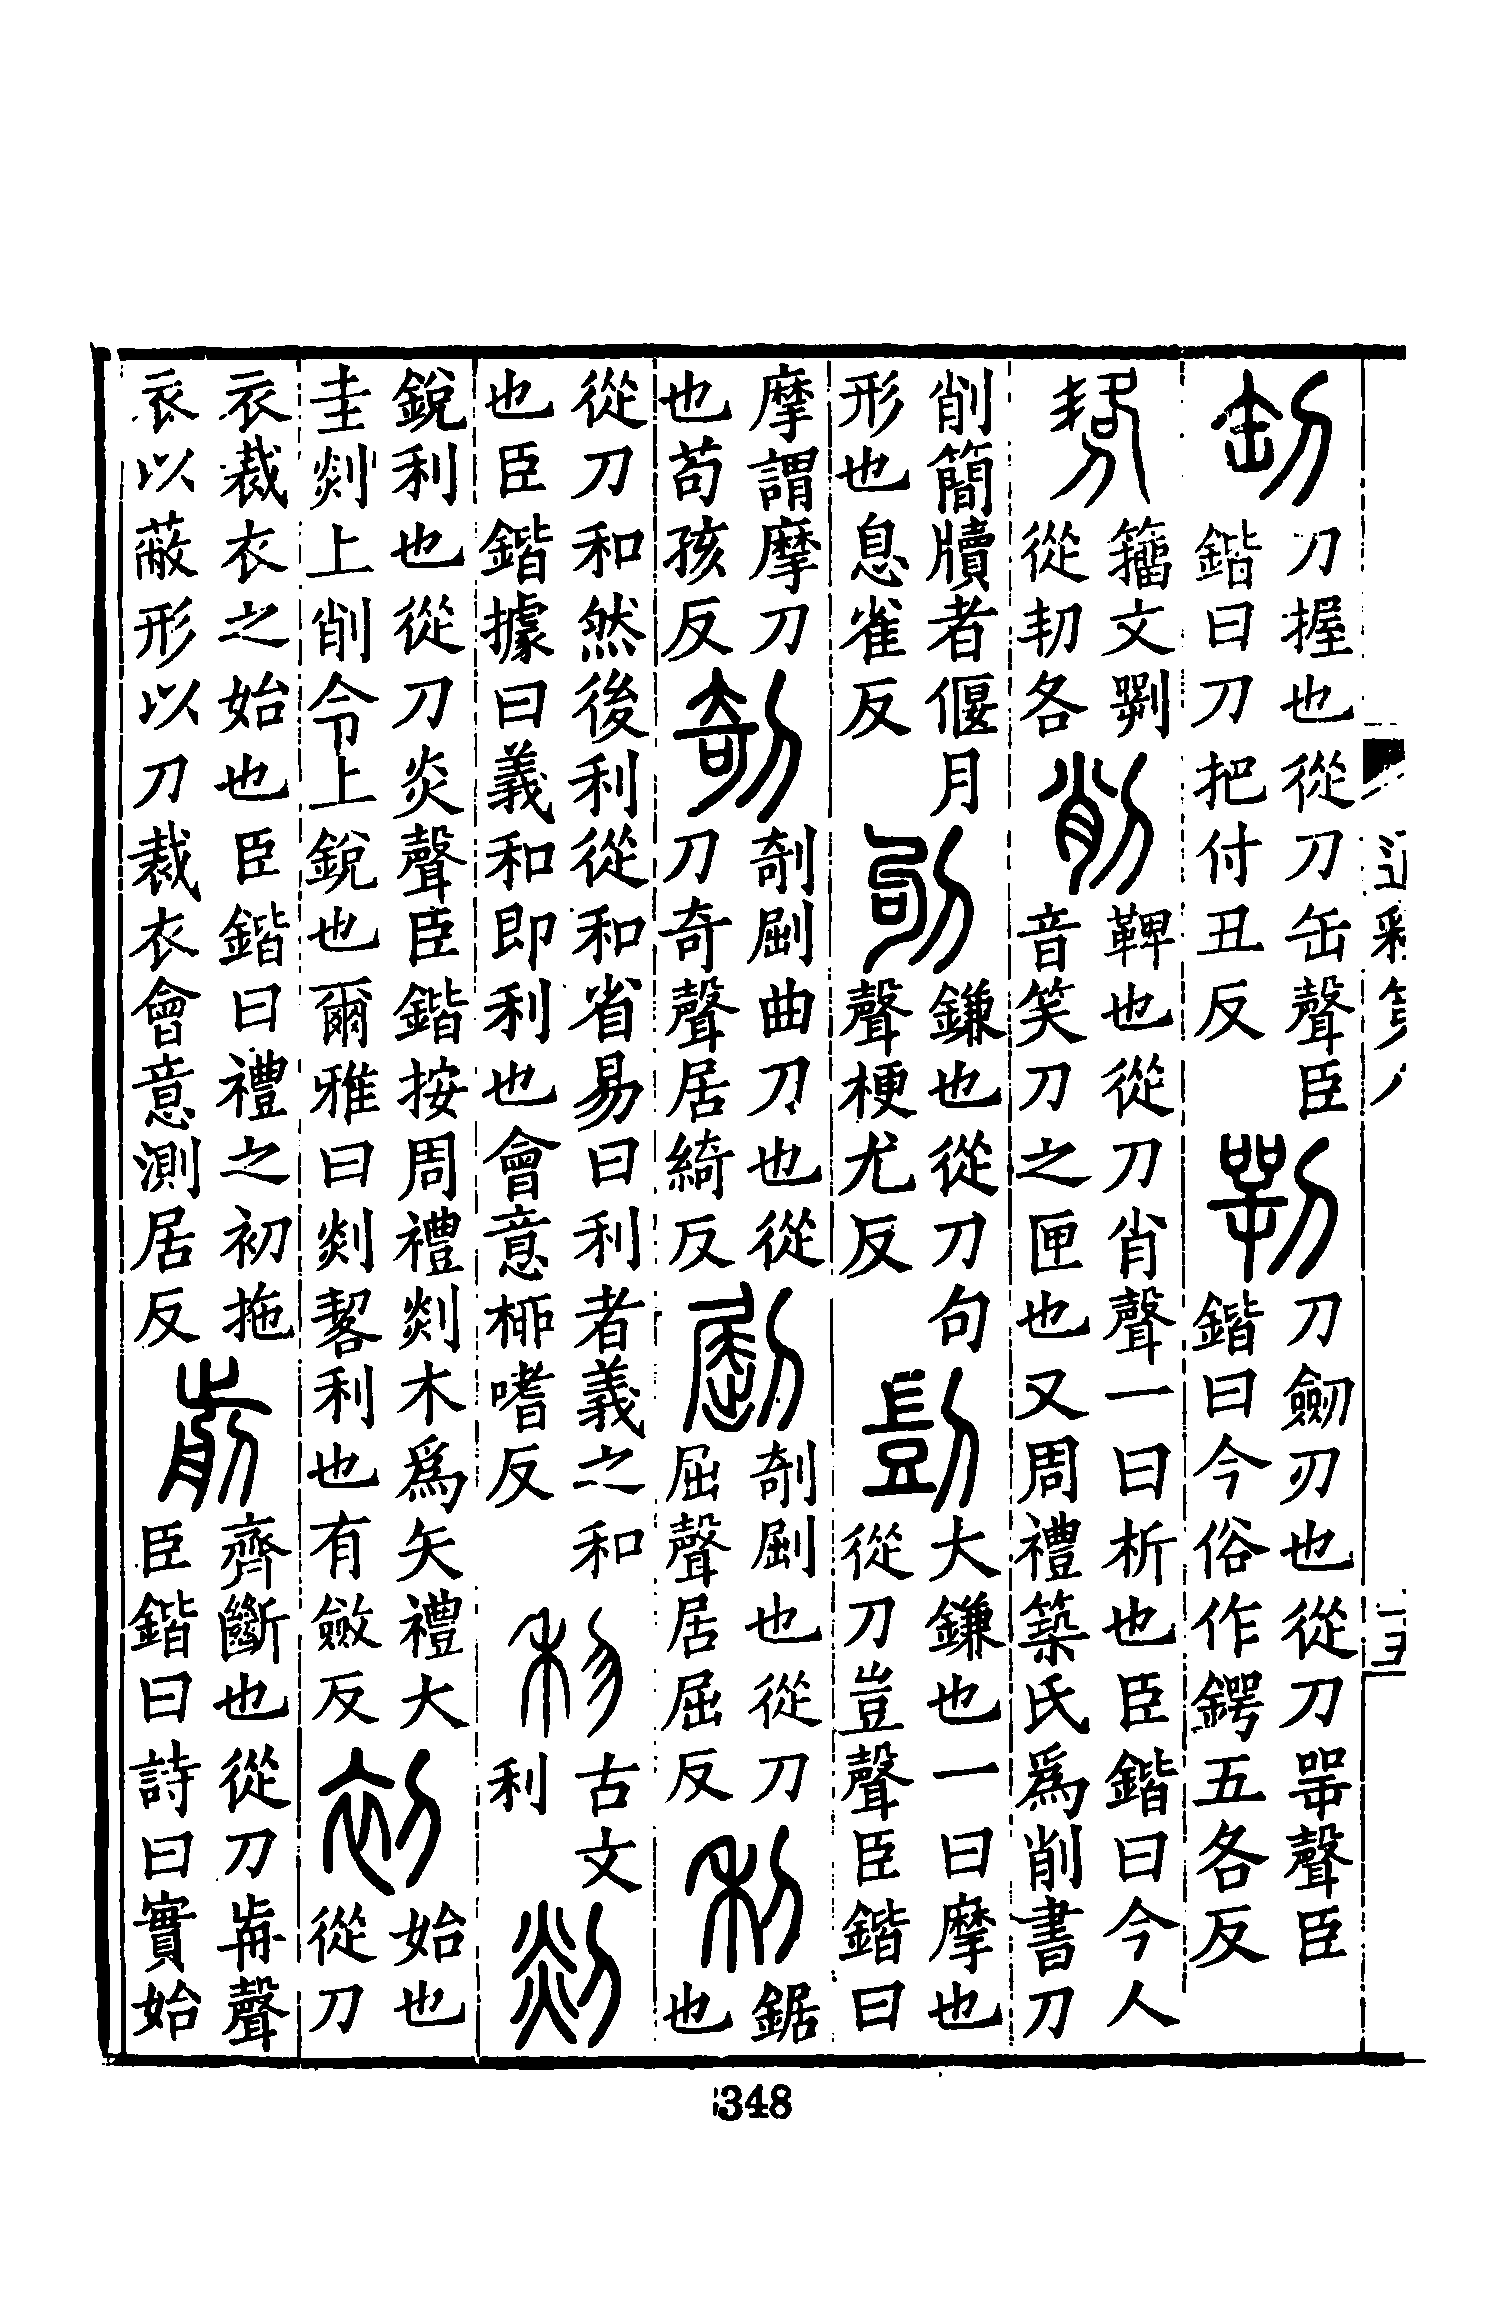 𠚥
刀握也從刀缶聲臣
鍇曰刀把付丑反
㓵
刀劒刃也從刀㖾聲臣
鍇曰今俗作鍔五各反
籀文㓵
從㓞各
削
鞞也從刀肖聲一曰析也臣鍇曰今人
音笑刀之匣也又周禮築氏爲削書刀
削簡牘者偃月
形也息雀反
𠛎
鎌也從刀句
聲梗尤反
剴
大鎌也一曰摩也
從刀豈聲臣鍇曰
摩謂摩刀
也苟孩反
剞
剞𠜾曲刀也從
刀奇聲居綺反
𠜾
剞𠜾也從刀
屈聲居屈反
利
鋸
也
從刀和然後利從和省易曰利者義之和
也臣鍇據曰義和即利也會意柳嗜反
古文
利
剡
銳利也從刀炎聲臣鍇按周禮剡木爲矢禮大
圭剡上削令上銳也爾雅曰剡䂮利也有斂反
初
始也
從刀
衣裁衣之始也臣鍇曰禮之初拖
衣以蔽形以刀裁衣會意測居反
前
齊斷也從刀歬聲
臣鍇曰詩曰實始
348